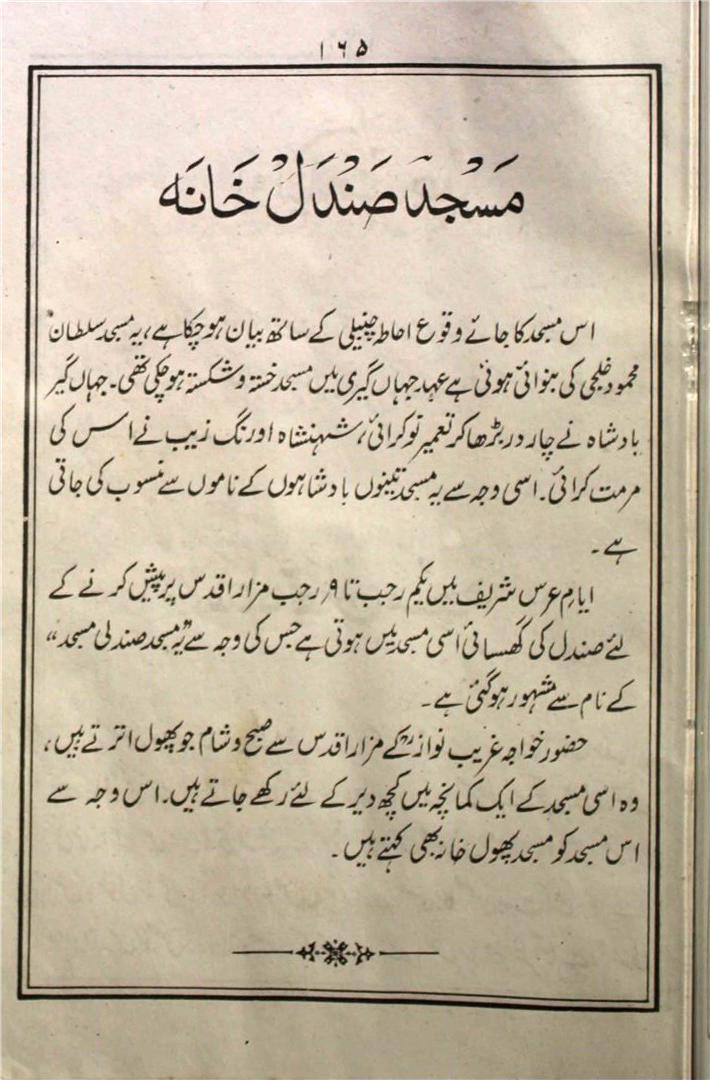 ۱۶۵
مَسْجدْ صَنْدَلْ خَانَہ
اس مسجد کا جائے وقوع احاطہ چنبیلی کے ساتھ بیان ہو چکا ہے، یہ مسجد سلطان
محمود خلجی کی بنوائی ہوئی ہے عہد جہاں گیری میں مسجد خستہ و شکستہ ہو چکی تھی۔ جہاں گیر
بادشاہ نے چار در بڑھا کر تعمیر تو کرائی، شہنشاہ اورنگ زیب نے اس کی
مرمت کرائی۔ اسی وجہ سے یہ مسجد تینوں بادشاہوں کے ناموں سے منسوب کی جاتی
ہے۔
ایامِ عرس شریف میں یکم رجب تا ۹ رجب مزار اقدس پر پیش کرنے کے
لئے صندل کی گھسائی اسی مسجد میں ہوتی ہے جس کی وجہ سے یہ "مسجد صندلی مسجد"
کے نام سے مشہور ہو گئی ہے۔
حضور خواجہ غریب نوازؒ کے مزار اقدس سے صبح و شام جو پھول اترتے ہیں،
وہ اسی مسجد کے ایک کمانچہ میں کچھ دیر کے لئے رکھے جاتے ہیں۔ اس وجہ سے
اس مسجد کو مسجد پھول خانہ بھی کہتے ہیں۔